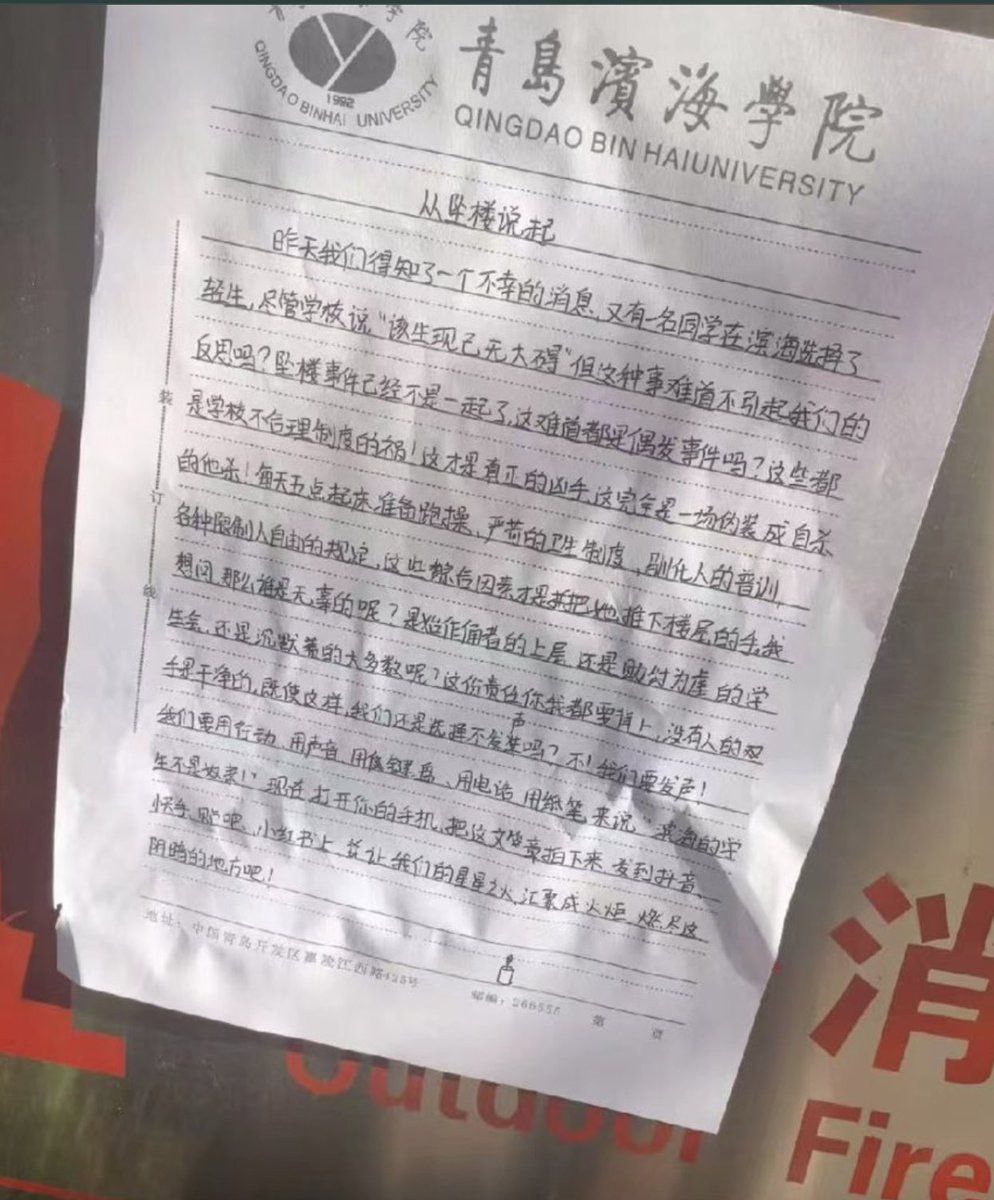 青島濱海學院
QINGDAO BINHAI UNIVERSITY
1992
QINGDAO BIN HAIUNIVERSITY
从坠楼说起
昨天我们得知了一个不幸的消息,又有一名同学在滨海选择了
轻生,尽管学校说“该生现已无大碍”但这种事难道不引起我们的
反思吗?坠楼事件已经不是一起了,这难道都是偶发事件吗?这些都
是学校不合理制度的祸!这才是真正的凶手,这完全是一场伪装成自杀
的他杀!每天五点起床准备跑操、严苛的卫生制度、驯化人的普训,
各种限制人自由的规定,这些综合因素才是把她推下楼层的手,我
想问,那么谁是无辜的呢?是始作俑者的上层 还是助纣为虐的学
生会,还是沉默着的大多数呢?这份责任你我都要担上,没有人的双
手是干净的,既使这样,我们还是选择不发声吗?不!我们要发声!
我们要用行动、用声音、用键盘、用电话、用纸笔 来说“滨海的学
生不是奴隶!”现在,打开你的手机,把这文章拍下来 发到抖音、
快手、贴吧、小红书上,让我们的星星之火,汇聚成火炬,燃尽这
阴暗的地方吧!
装
订
线
地址:中国青岛开发区嘉陵江西路425号 邮编:266555 第 页
消
Outdoor Fire